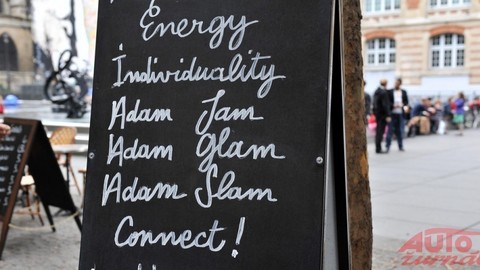 Energy
Individuality
Adam Jam
Adam Glam
Adam Slam
Connect!
AUTO
žurnál